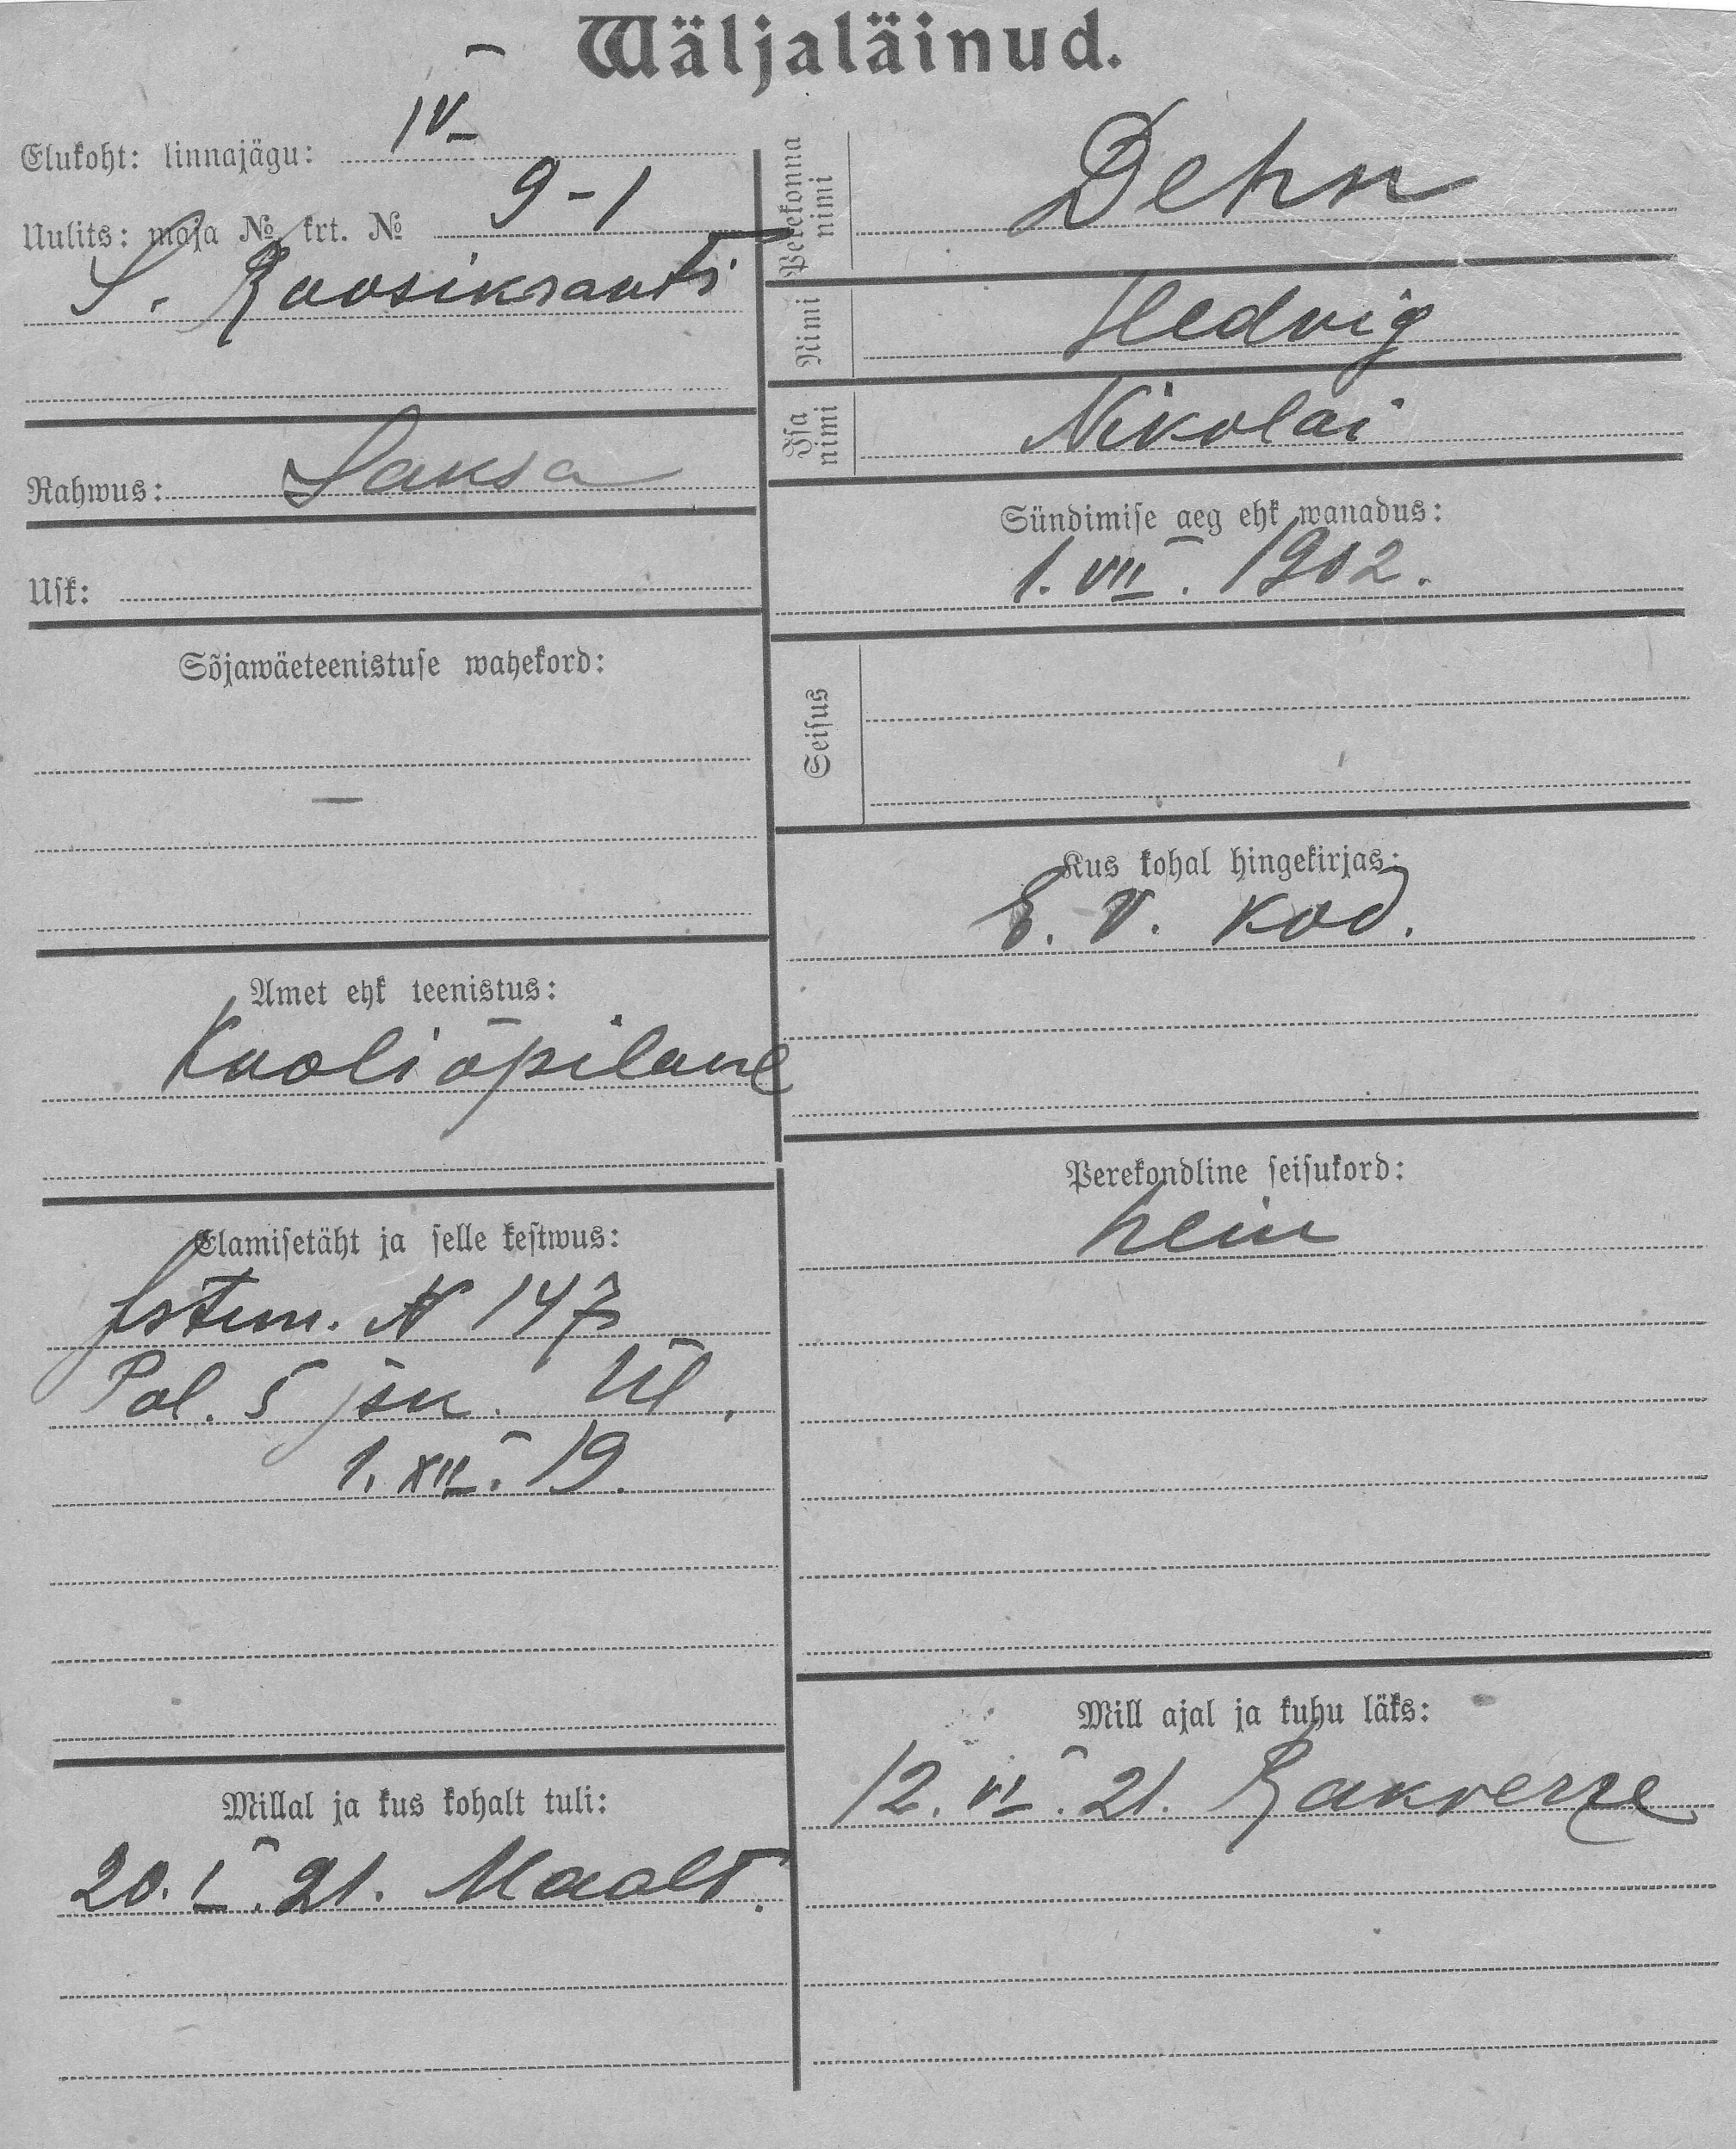 Wäljaläinud.
Elukoht: linnajägu: IV
Uulits: maja № krt. № 9-1
S. Roosikranti
Rahwus: Saksa
Usk:
Sõjawäeteenistuse wahekord:
Amet ehk teenistus:
Kooliõpilane
Elamisetäht ja selle kestwus:
N 147
Pol. 5 jsk. Ül.
1. XII. 19.
Millal ja kus kohalt tuli:
20. I. 21. Maalt.
Perekonna nimi Dehn
Nimi Hedvig
Isa nimi Nikolai
Sündimise aeg ehk wanadus:
1. VII. 1902.
Seisus
Kus kohal hingekirjas:
E. V. kod.
Perekondline seisukord:
neiu
Mill ajal ja kuhu läks:
12. VI. 21. Rakverre